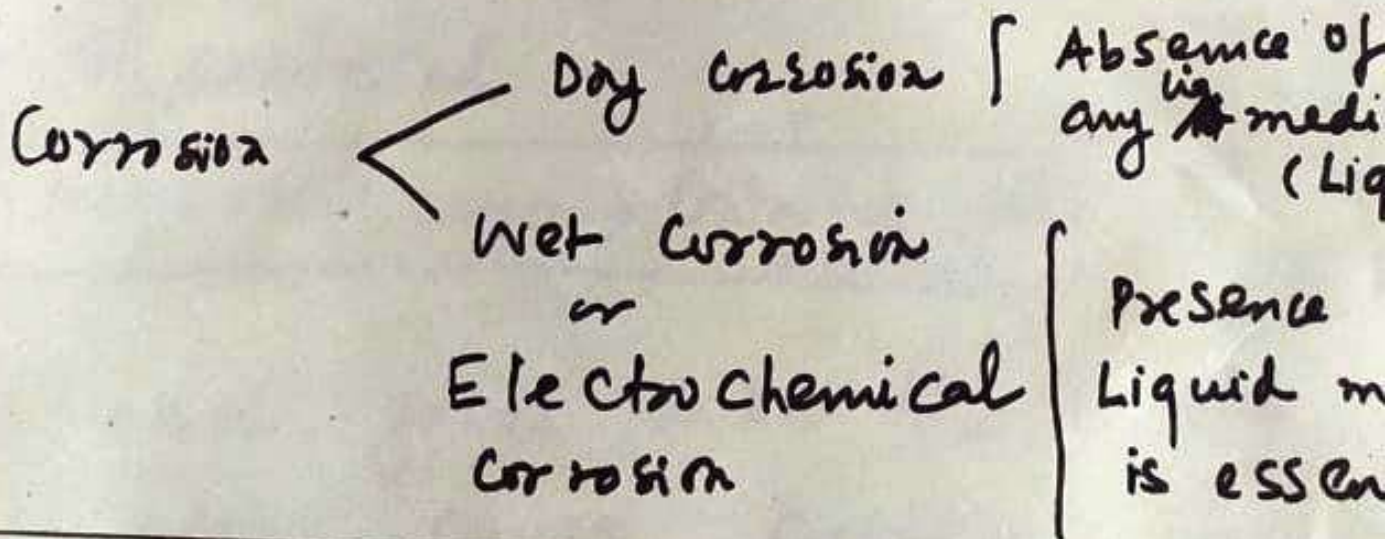 Corrosion
Dry Corrosion
Absence of
any liq medi
(Liq
Wet Corrosion
or
Electrochemical
Corrosion
Presence
Liquid m
is essen